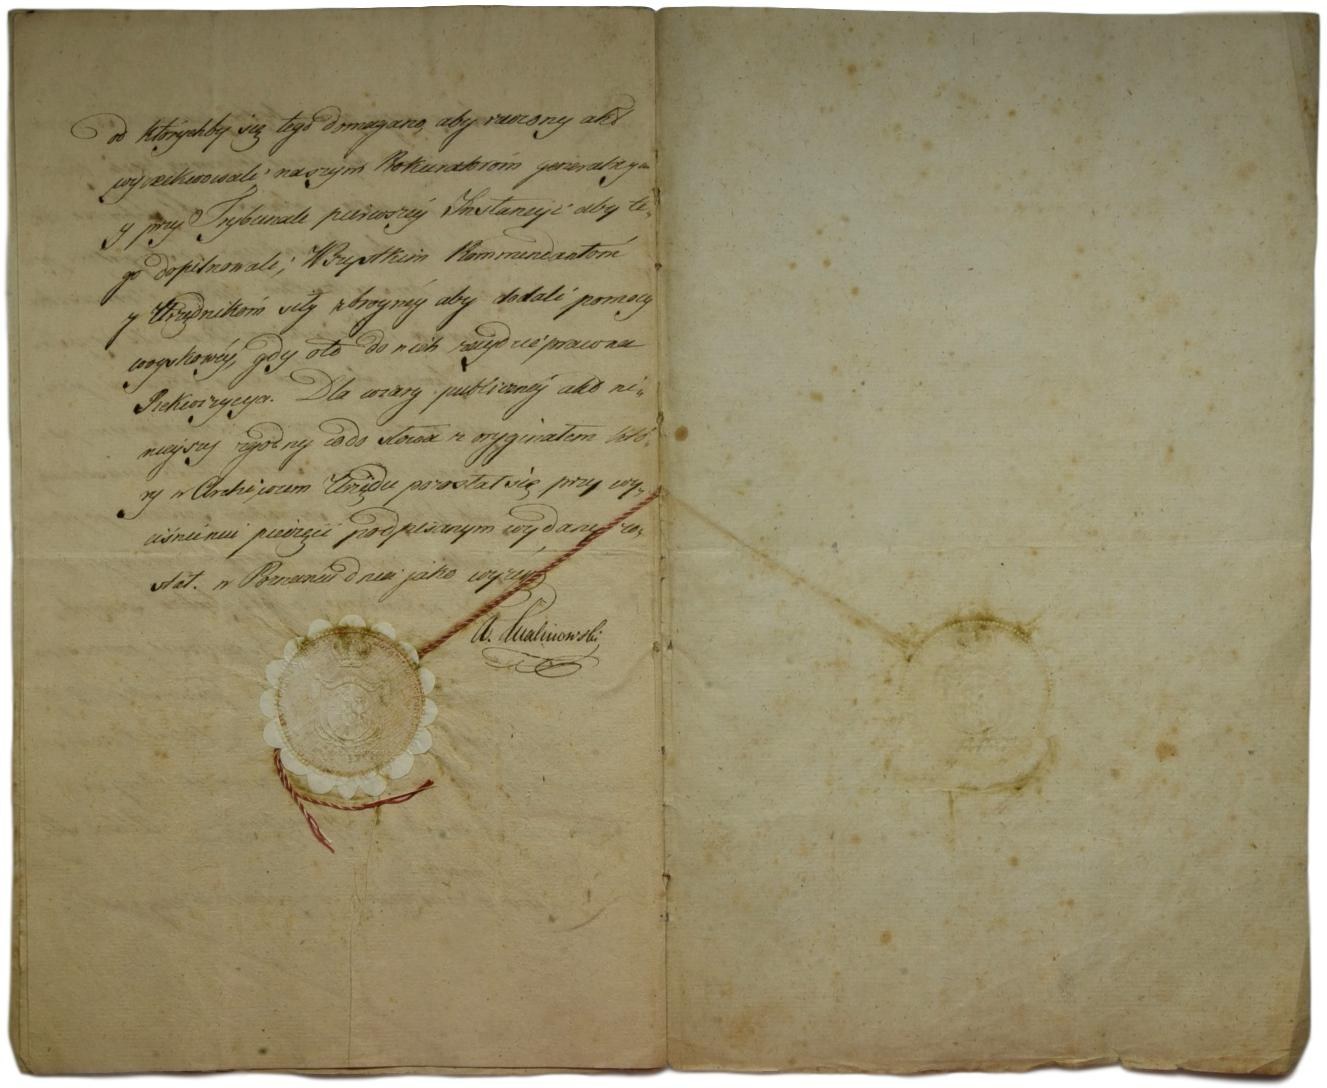 od którychby się tego domagano, aby rzeczony akt
wyexekwowali; naszym Prokuratorom generalnym
y przy Trybunale pierwszey Instancyi aby te„
go dopilnowali; Wszystkim Kommendantom
y Urzędnikom siły zbroyney aby dodali pomocy
woyskowéy, gdy oto do nich zaydzie prawna
Rekwizycya. Dla wiary publicznéy akt ni„
nieyszy zgodny co do słowa z oryginałem któ„
ry w Archiwum Urzędu pozostał się, przy wy„
ciśnieniu pieczęci podpisanym wydany zo„
stał. w Poznaniu dnia jako wyżey